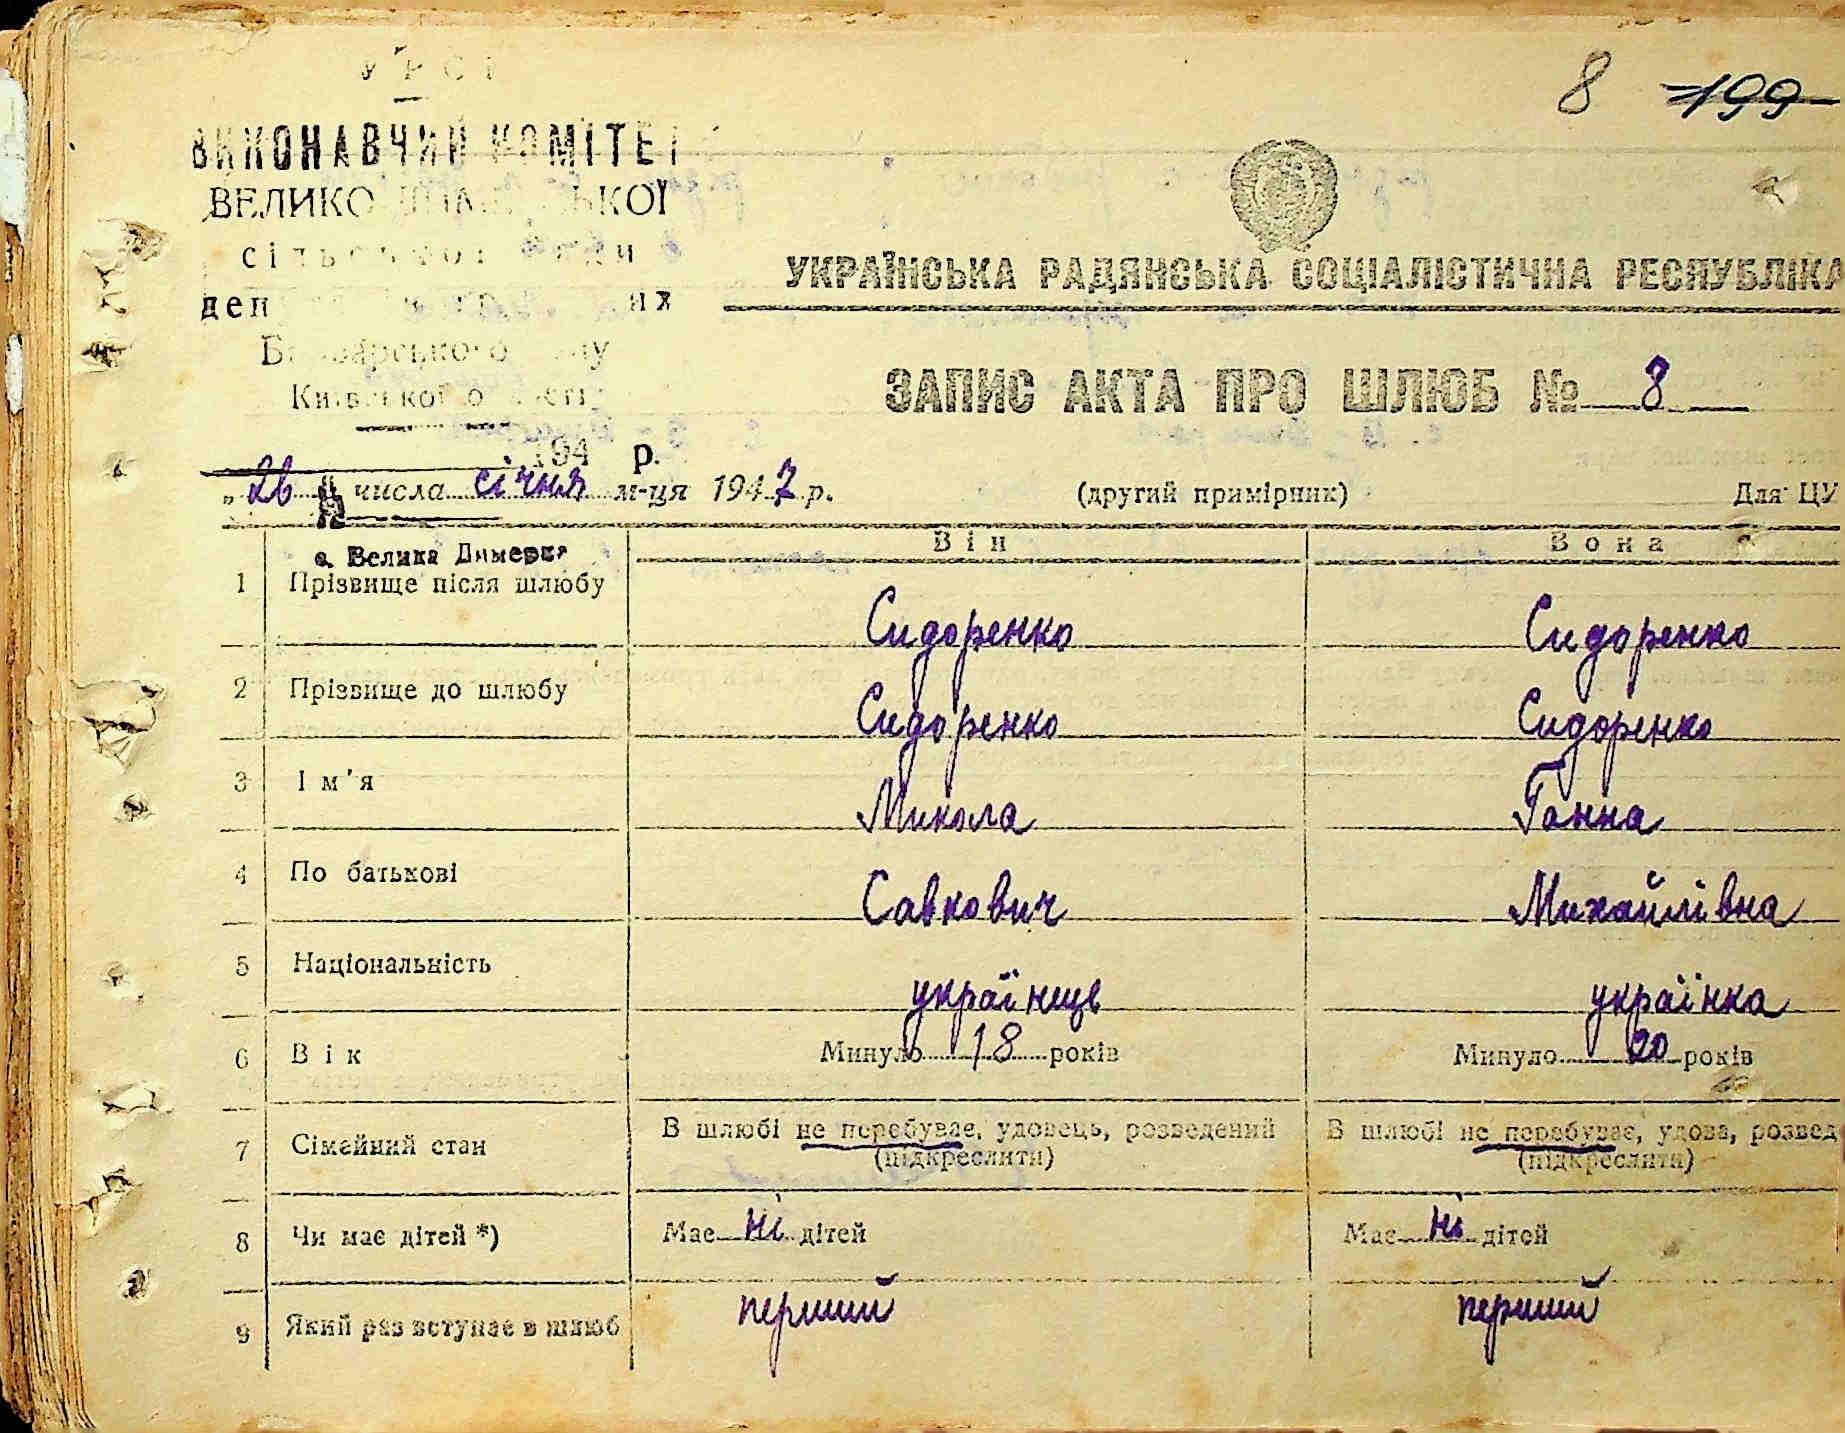 УРСР
8 199
ВИКОНАВЧИЙ КОМІТЕТ
ВЕЛИКО
сільської ради
УКРАЇНСЬКА РАДЯНСЬКА СОЦІАЛІСТИЧНА РЕСПУБЛІКА
Київської області
ЗАПИС АКТА ПРО ШЛЮБ № 8
194 р.
„26 числа січня м-ця 1947 р.
(другий примірник)
Для ЦУ
с. Велика Димерка
Він Вона
1 Прізвище після шлюбу Сидоренко Сидоренко
2 Прізвище до шлюбу Сидоренко Сидоренко
3 Ім'я Микола Ганна
4 По батькові Савкович Михайлівна
5 Національність українець українка
6 Вік Минуло 18 років Минуло 20 років
7 Сімейний стан В шлюбі не перебуває, удовець, розведений В шлюбі не перебуває, удова, розвед
(підкреслити) (підкреслити)
8 Чи має дітей *) Має ні дітей Має ні дітей
9 Який раз вступає в шлюб перший перший